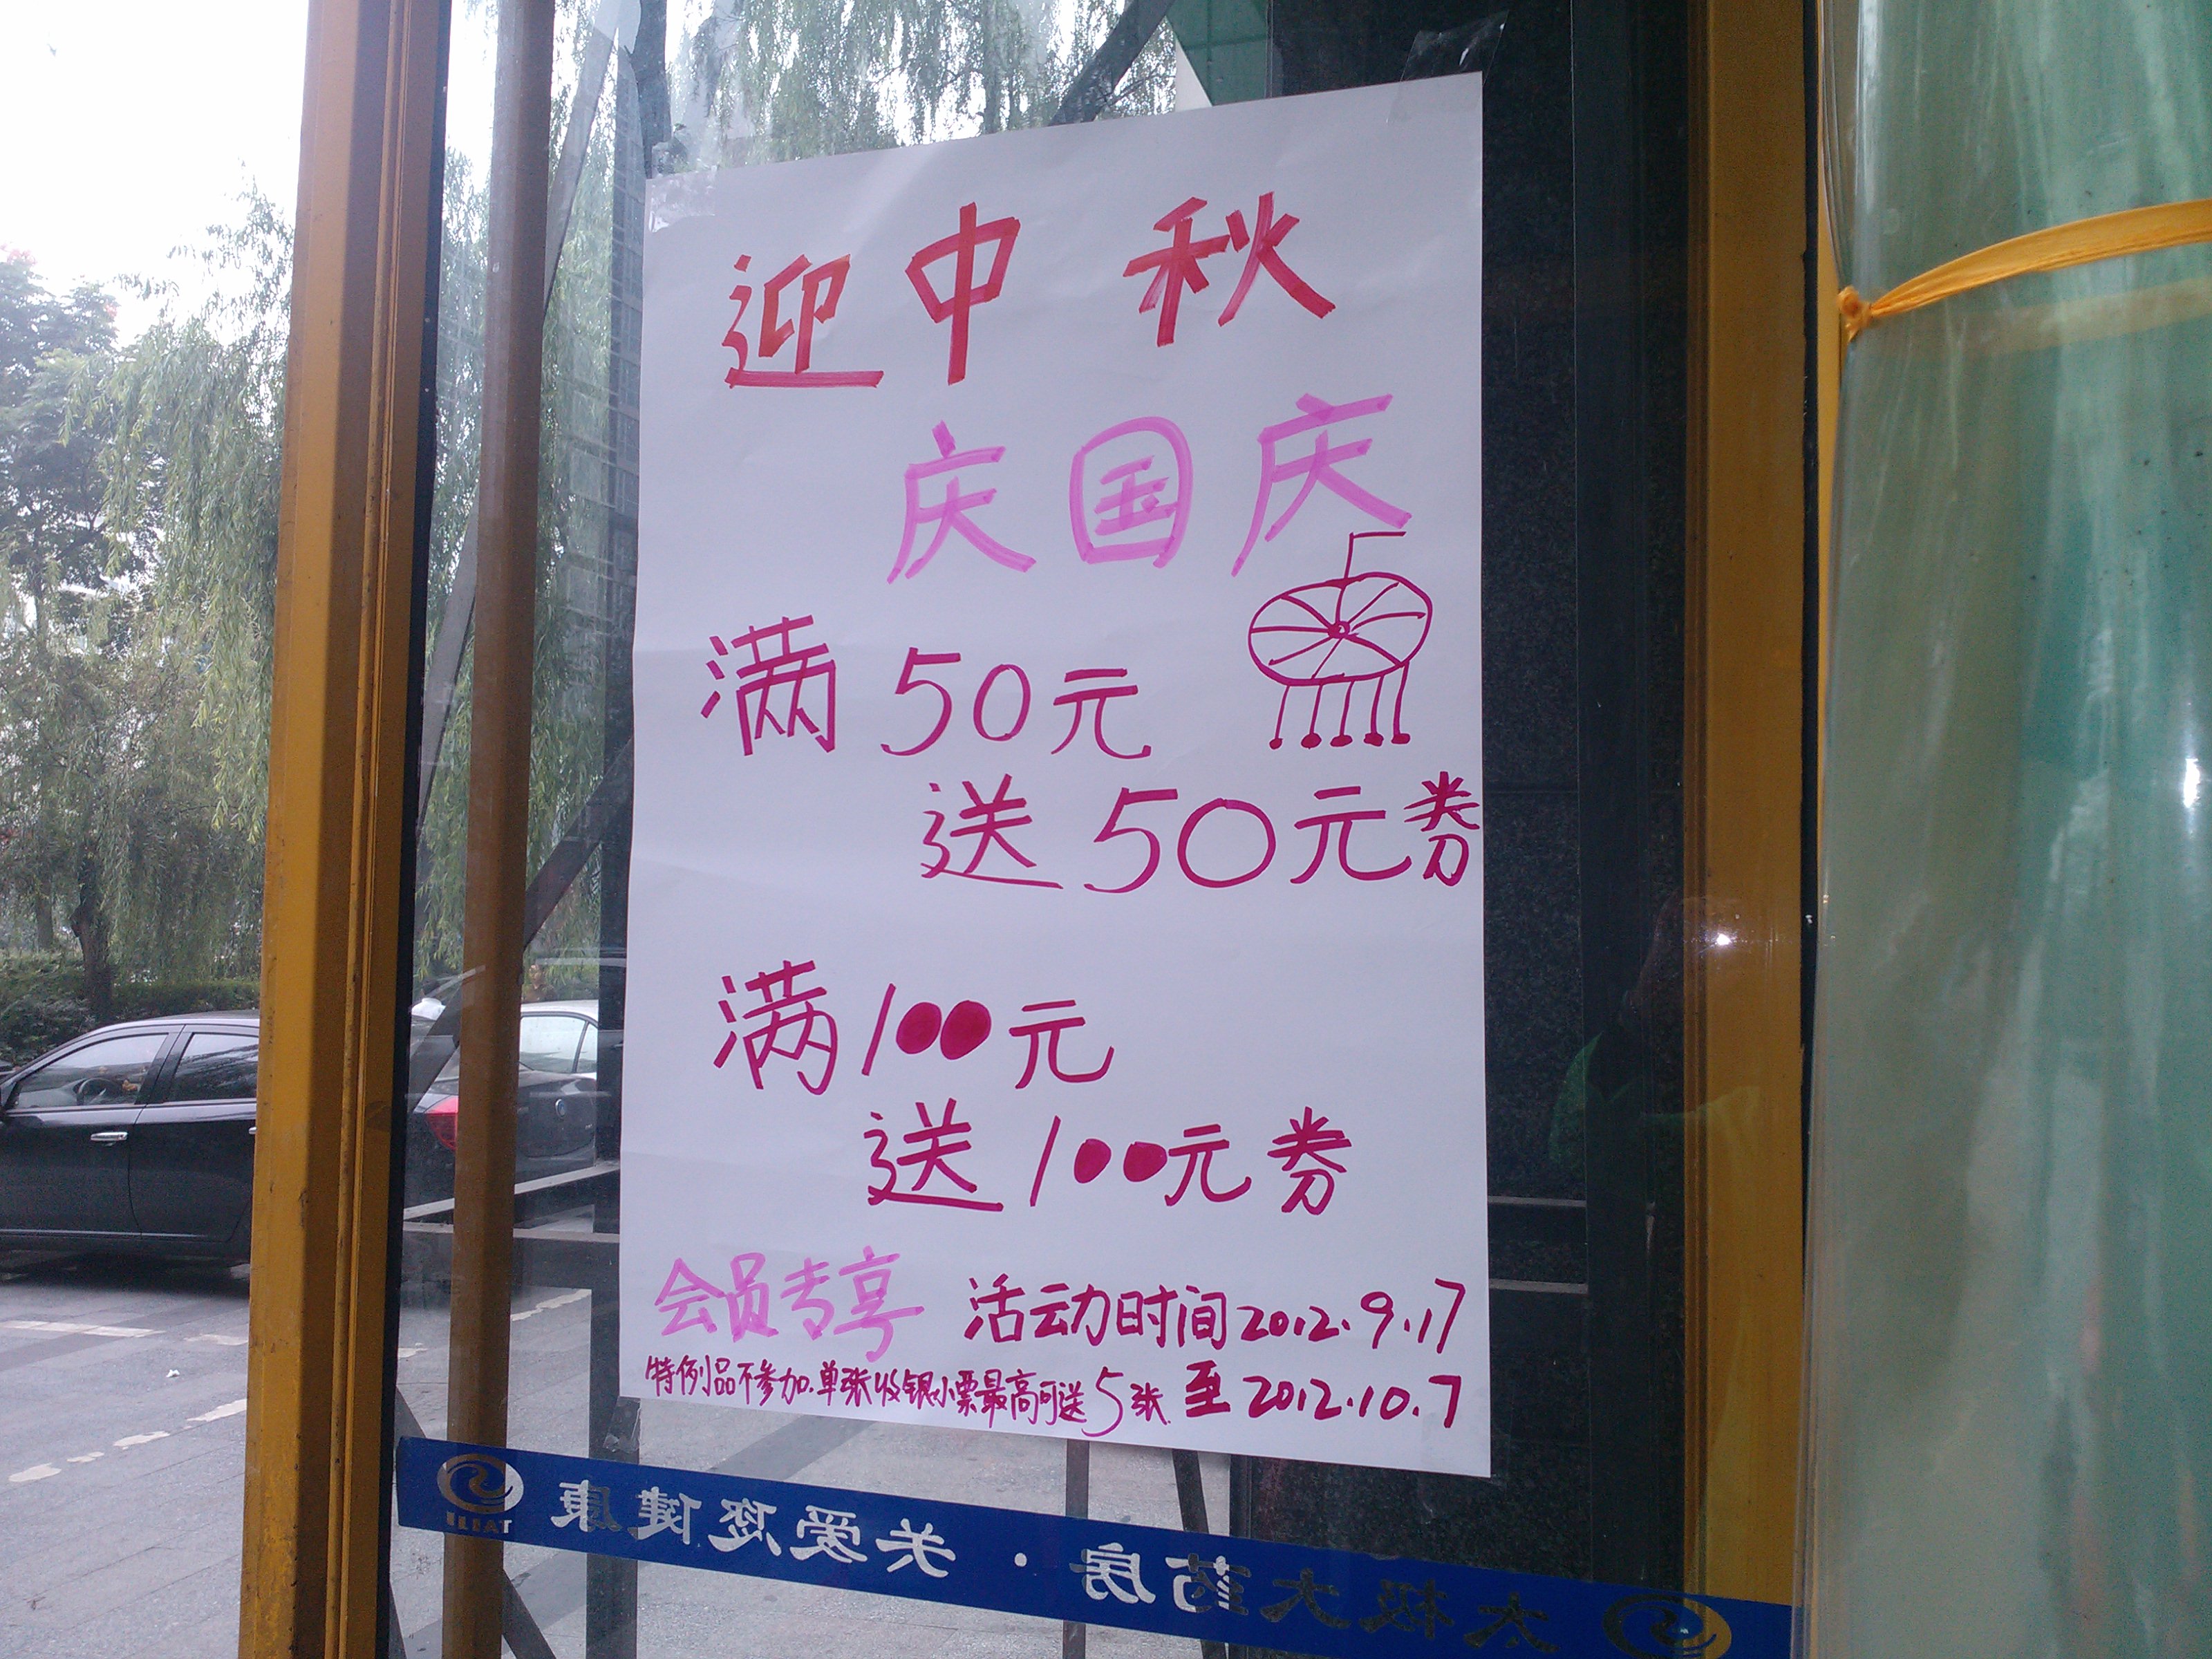 迎中秋
庆国庆
满50元
送50元券
满100元
送100元券
会员专享 活动时间2012.9.17
特例品不参加.单张收银小票最高可送5张 至2012.10.7
太极大药房·关爱您健康
TAIJI